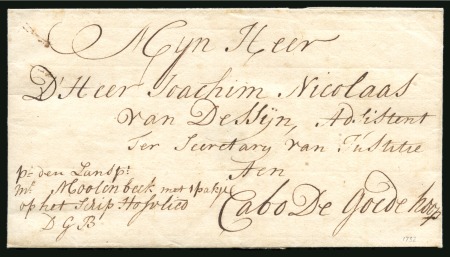 Myn Heer
D'Heer Joachim Nicolaas
van Dessyn, Adsistent
Ter Secretary van Justitie
Aen
Cabo De Goede hoop
pr. den Lanspt.
Mr. Moolenbeek met 1 pakje
op het Schip Hofvlied
D G B